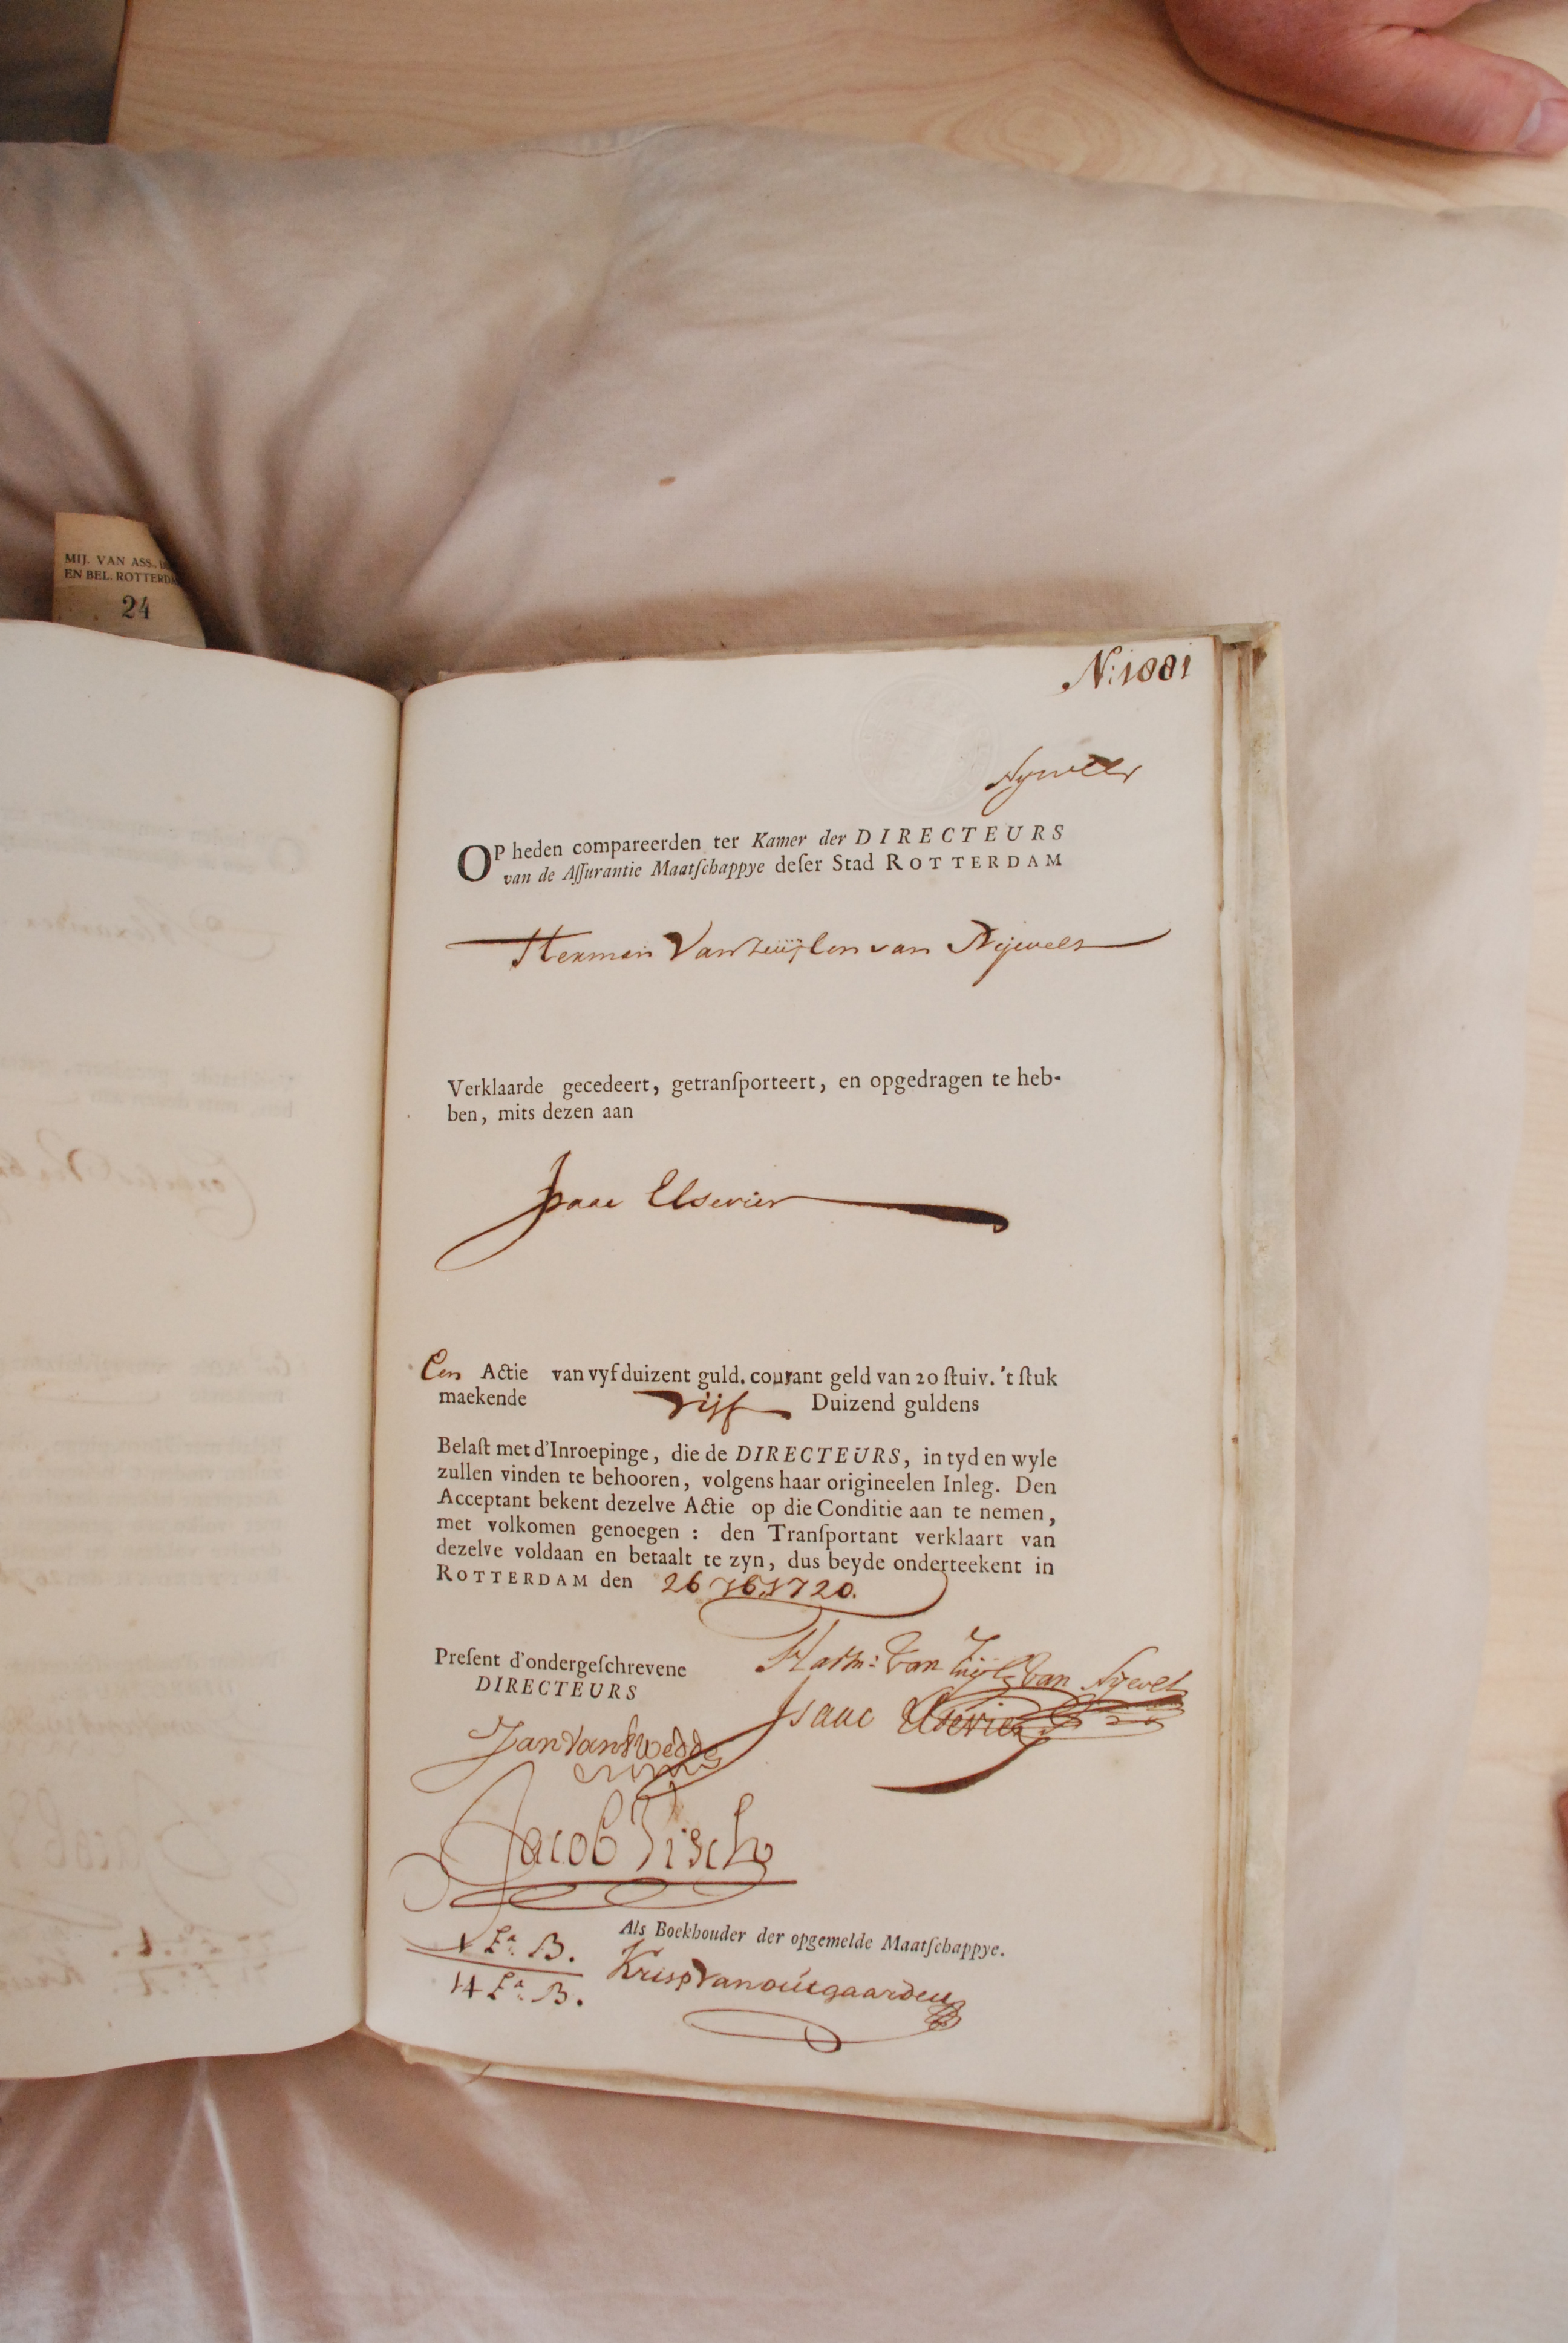 MIJ. VAN ASS.
EN BEL. ROTTERD
24
N:1081
Nywelt
OP heden compareerden ter Kamer der DIRECTEURS
van de Aſſurantie Maatſchappye deſer Stad ROTTERDAM
Herman Van Zuijlen van Nijevelt
Verklaarde gecedeert, getranſporteert, en opgedragen te heb-
ben, mits dezen aan
Isaac Elsevier
Een Actie van vyf duizent guld. courant geld van 20 ſtuiv. 't ſtuk
maekende vijf Duizend guldens
Belaſt met d'Inroepinge, die de DIRECTEURS, in tyd en wyle
zullen vinden te behooren, volgens haar origineelen Inleg. Den
Acceptant bekent dezelve Actie op die Conditie aan te nemen,
met volkomen genoegen : den Tranſportant verklaart van
dezelve voldaan en betaalt te zyn, dus beyde onderteekent in
ROTTERDAM den 26 7b 1720.
Preſent d'ondergeſchrevene
DIRECTEURS
Harm: Van Zuijl: Van Nijevelt
Isaac Elsevier
Jan Van Kwedde
Jacob Visch
Als Boekhouder der opgemelde Maatſchappye.
1 Lª. B.
14 Lª. B.
Krisp Van outgaarden